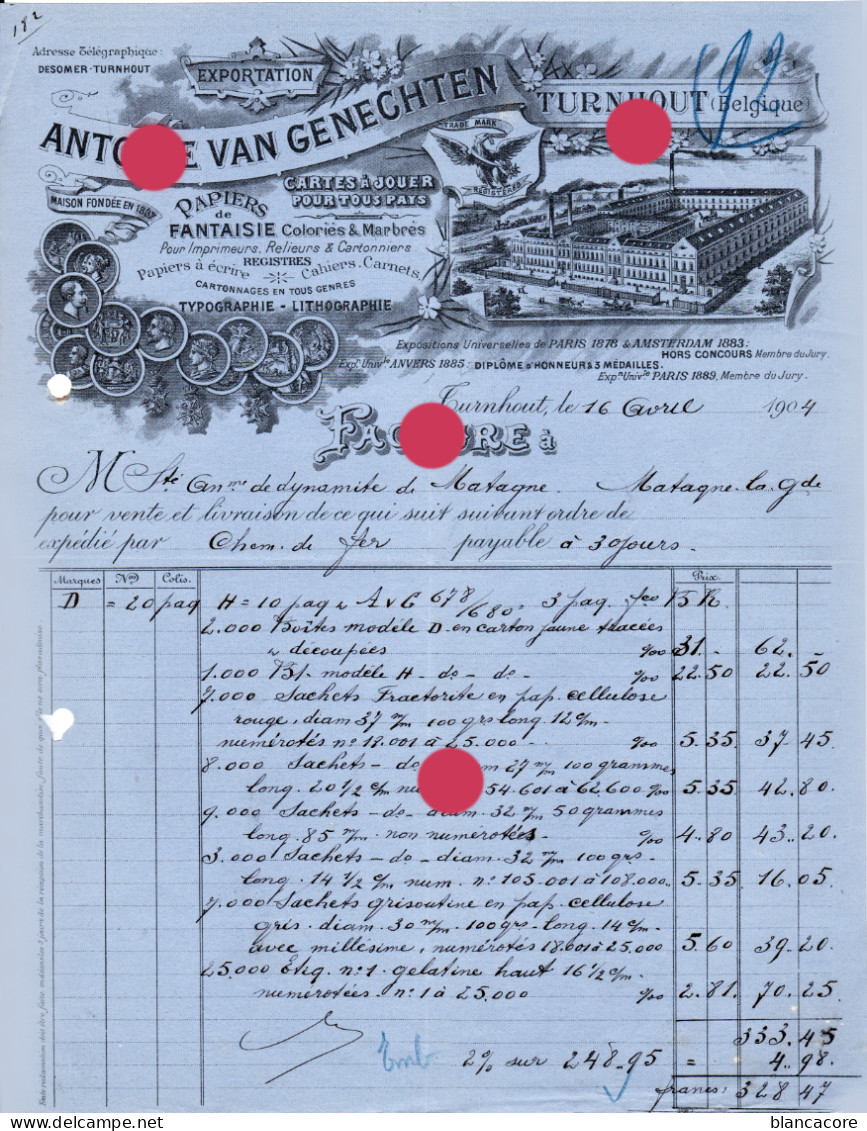 182
92
Adresse Télégraphique:
DESOMER-TURNHOUT
EXPORTATION
VAN GENECHTEN
TURNHOUT (Belgique)
TRADE MARK
REGISTERED
MAISON FONDÉE EN
PAPIERS
de
FANTAISIE Coloriés & Marbrés
CARTES À JOUER
POUR TOUS PAYS
Pour Imprimeurs, Relieurs & Cartonniers
REGISTRES
Papiers à écrire Cahiers, Carnets
CARTONNAGES EN TOUS GENRES
TYPOGRAPHIE - LITHOGRAPHIE
Expositions Universelles de PARIS 1878 & AMSTERDAM 1883:
HORS CONCOURS Membre du Jury.
Expn Univle ANVERS 1885: DIPLÔME d'HONNEUR & 3 MÉDAILLES.
Expn Univle PARIS 1889, Membre du Jury.
Turnhout, le 16 Avril 1904
à
M Sté Anme de dynamite de Matagne. Matagne-la-Gde
pour vente et livraison de ce qui suit suivant ordre de
expédié par Chem. de fer payable à 30 jours.
Marques Nos Colis. Prix
D = 20 paq H = 10 paq 678/680 3 paq. fco
2.000 Boîtes modèle D en carton jaune tracées
& découpées %00 31.- 62.
1.000 Bt. modèle H - do - do - %00 22.50 22.50
7.000 Sachets Fractorite en pap. cellulose
rouge, diam 37 m/m 100 grs long. 12 c/m -
numérotés no 18.001 à 25.000 - %00 5.35 37.45
8.000 Sachets - do - 27 m/m 100 grammes
long. 20 1/2 c/m 54.601 à 62.600 %00 5.35 42.80
9.000 Sachets - do - diam. 32 m/m 50 grammes
long. 85 m/m - non numérotés - %00 4.80 43.20
3.000 Sachets - do - diam. 32 m/m 100 grs -
long. 14 1/2 c/m num. no 105.001 à 108.000 5.35 16.05
7.000 Sachets grisoutine en pap. cellulose
gris - diam. 30 m/m - 100 grs - long. 14 c/m -
avec millésime, numérotés 18.001 à 25.000 5.60 39.20
25.000 Etiq. no 1. gelatine haut 16 1/2 c/m -
numérotées. no 1 à 25.000 %00 2.81. 70.25
333.45
2% sur 248.95 = 4.98
francs: 328 47
blancacore